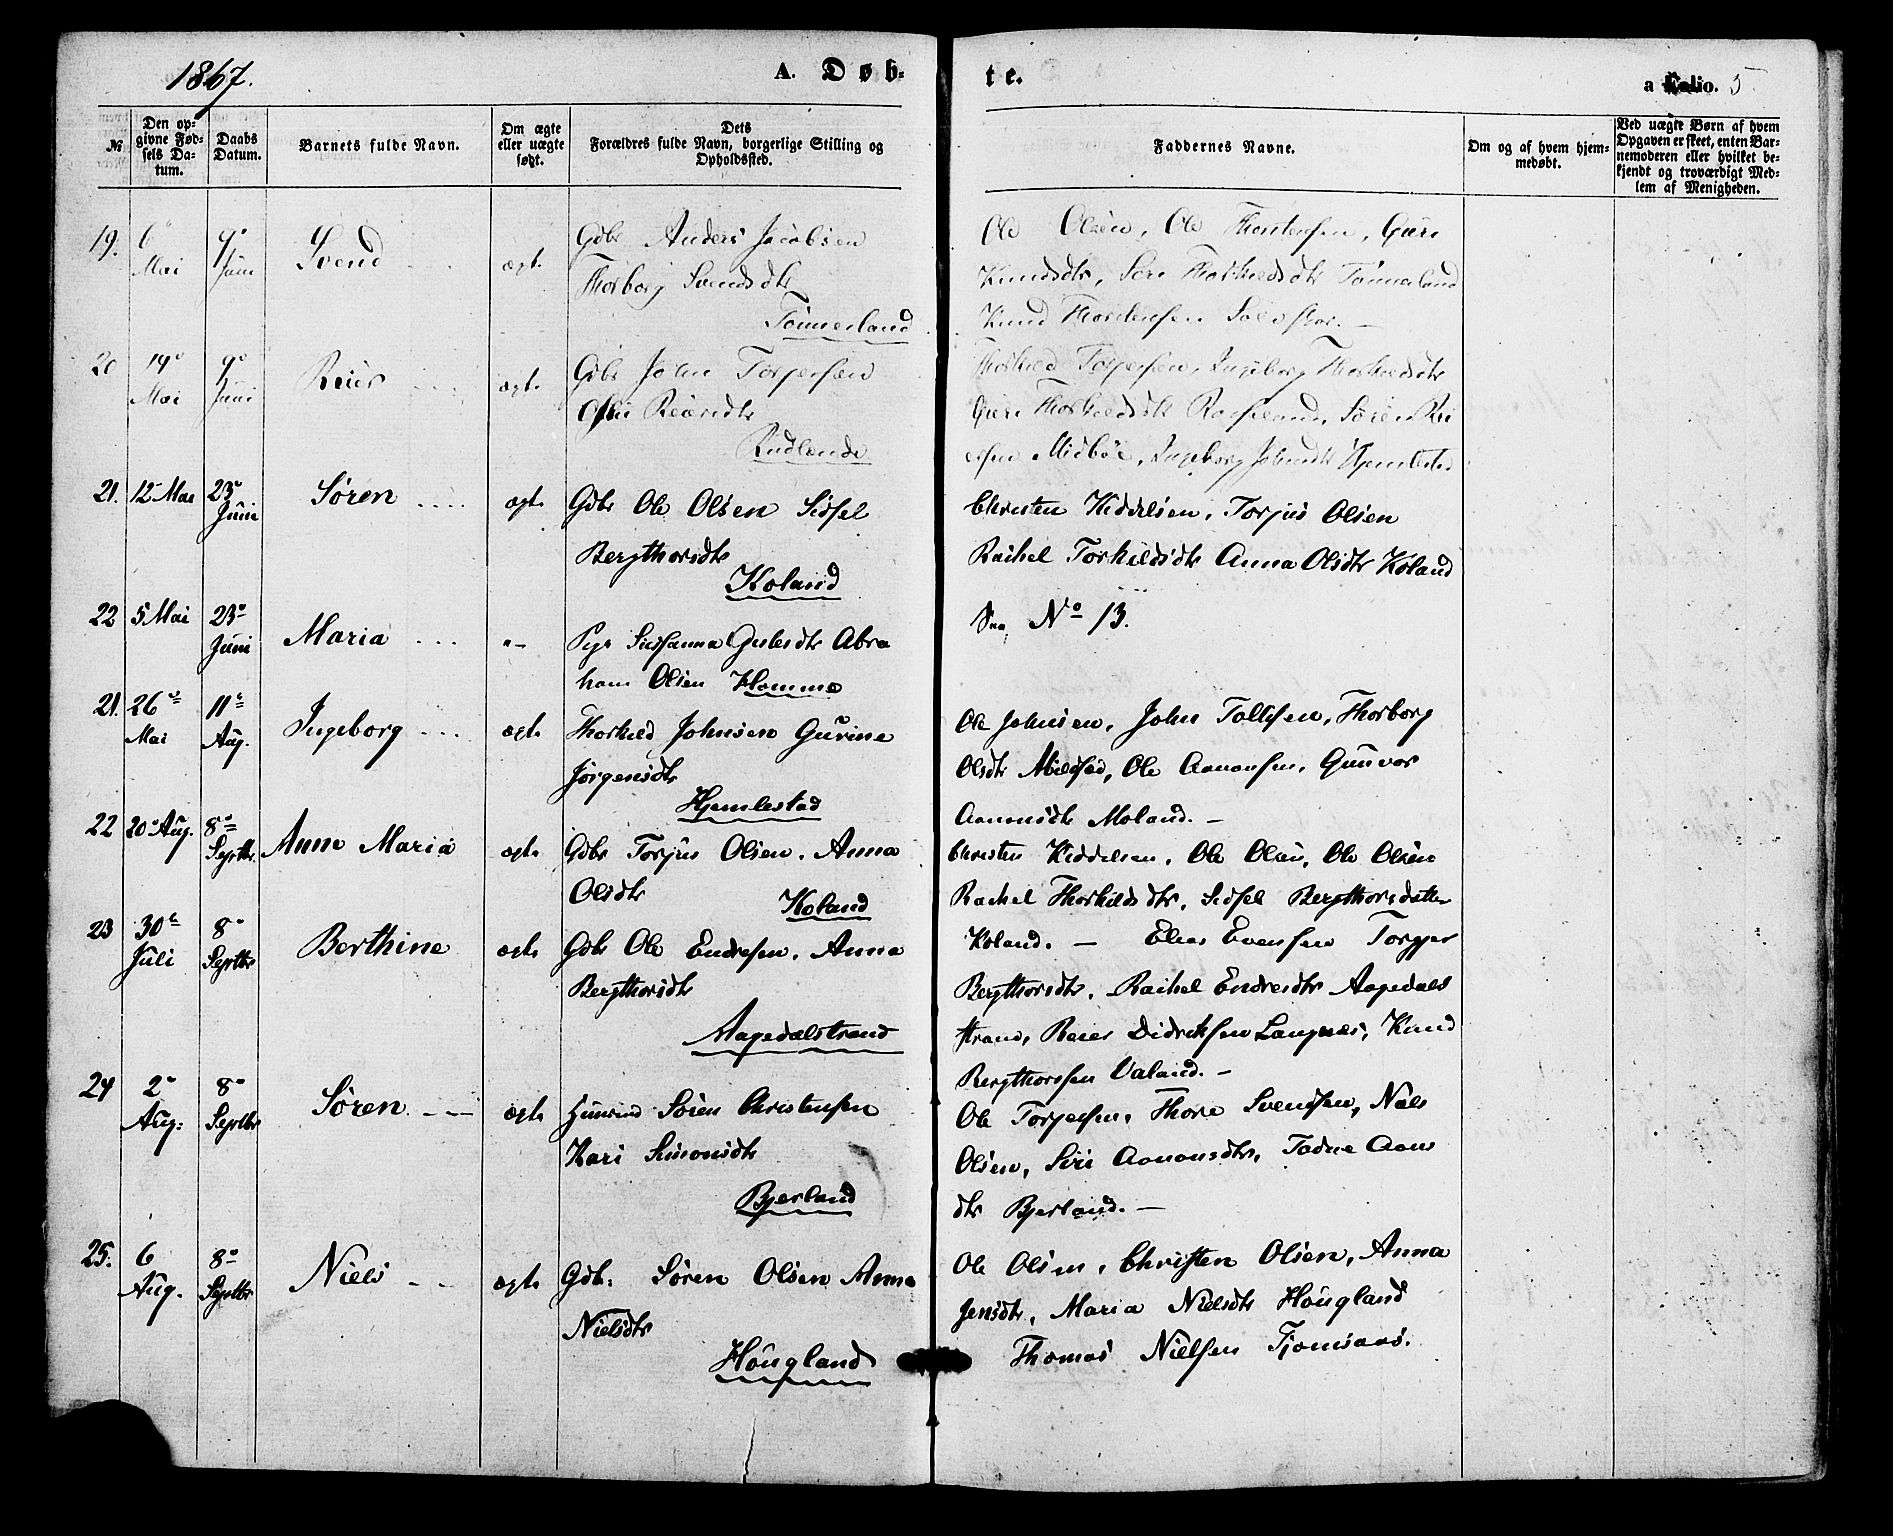 1867.
A. Døb-
te.
a Folio. 5
№
Den op-
givne Fød-
sels Da-
tum.
Daabs
Datum.
Barnets fulde Navn.
Om ægte
eller uægte
født.
Dets
Forældres fulde Navn, borgerlige Stilling og
Opholdssted.
Faddernes Navne.
Om og af hvem hjem-
medøbt.
Ved uægte Børn af hvem
Opgaven er skeet, enten Bar-
nemoderen eller hvilket be-
kjendt og troværdigt Med-
lem af Menigheden.
19.
6
Mai
9
Juni
Svend
ægt.
Gdbr Anders Jacobsen
Thorborg Svendsdtr
Tönnesland
Ole Olsen, Ole Thorstensen, Guri
Knudsdtr, Siri Thorkildsdtr Tönnesland
Knud Thorstensen
20
19
Mai
9
Juni
Reier
ægt.
Gdbr John Torjersen
Reiersdtr
Rudlende
Thorkild Torjersen, Ingeborg Thorkildsdtr
Guri Thorkildsdtr Søren Rei
ersen Midböe, Ingeborg Johnsdtr Hjemlestad
21.
12 Mai
23
Juni
Søren
ægt.
Gdbr Ole Olsen Sidsel
Bergthorsdtr
Koland
Christen Kiddelsen, Torjus Olsen
Rachel Torkildsdtr Anna Olsdtr Koland
22
5 Mai
23
Juni
Maria
"
Pige Susanna Gulesdtr Abra
ham Olsen Homme
No 13.
21.
26
Mai
11
Aug.
Ingeborg
ægt.
Thorkild Johnsen Gurine
Jörgensdtr
Hjemlestad
Ole Johnsen, John Tollefsen, Thorborg
Olsdtr Ole Aanonsen, Gunvor
Aanonsdtr Moland. —
22
20 Aug.
8
Septbr
Anne Maria
ægt.
Gdbr Torjus Olsen, Anna
Olsdtr
Koland
Christen Kiddelsen, Ole Olsen, Ole Olsen
Rachel Thorkildsdtr, Sidsel Bergthorsdatter
Koland. —
23
30
Juli
8
Septbr
Berthine
ægt.
Gdbr Ole Endresen, Anna
Bergthorsdtr
Aagedalstrand
Elias Evensen Torger
Bergthorsdtr, Rachel Endresdtr Aagedals
strand, Reier Didriksen Langnes, Knud
Bergthorsen Valand. —
24
2
Aug:
8
Septbr
Søren
ægt.
Huusmd Sören Christensen
Kari Simonsdtr
Bjerland
Ole Torjersen, Thore Svendsen, Niels
Olsen, Siri Aanonsdtr, Tadne Aans
dtr Bjerland. —
25.
6
Aug.
8
Septbr
Niels
ægt.
Gdb: Søren Olsen Anna
Nielsdtr
Hougland
Ole Olsen, Christen Olsen, Anna
Jensdtr, Maria Nielsdtr Hougland
Thomas Nielsen Tjomsaas.